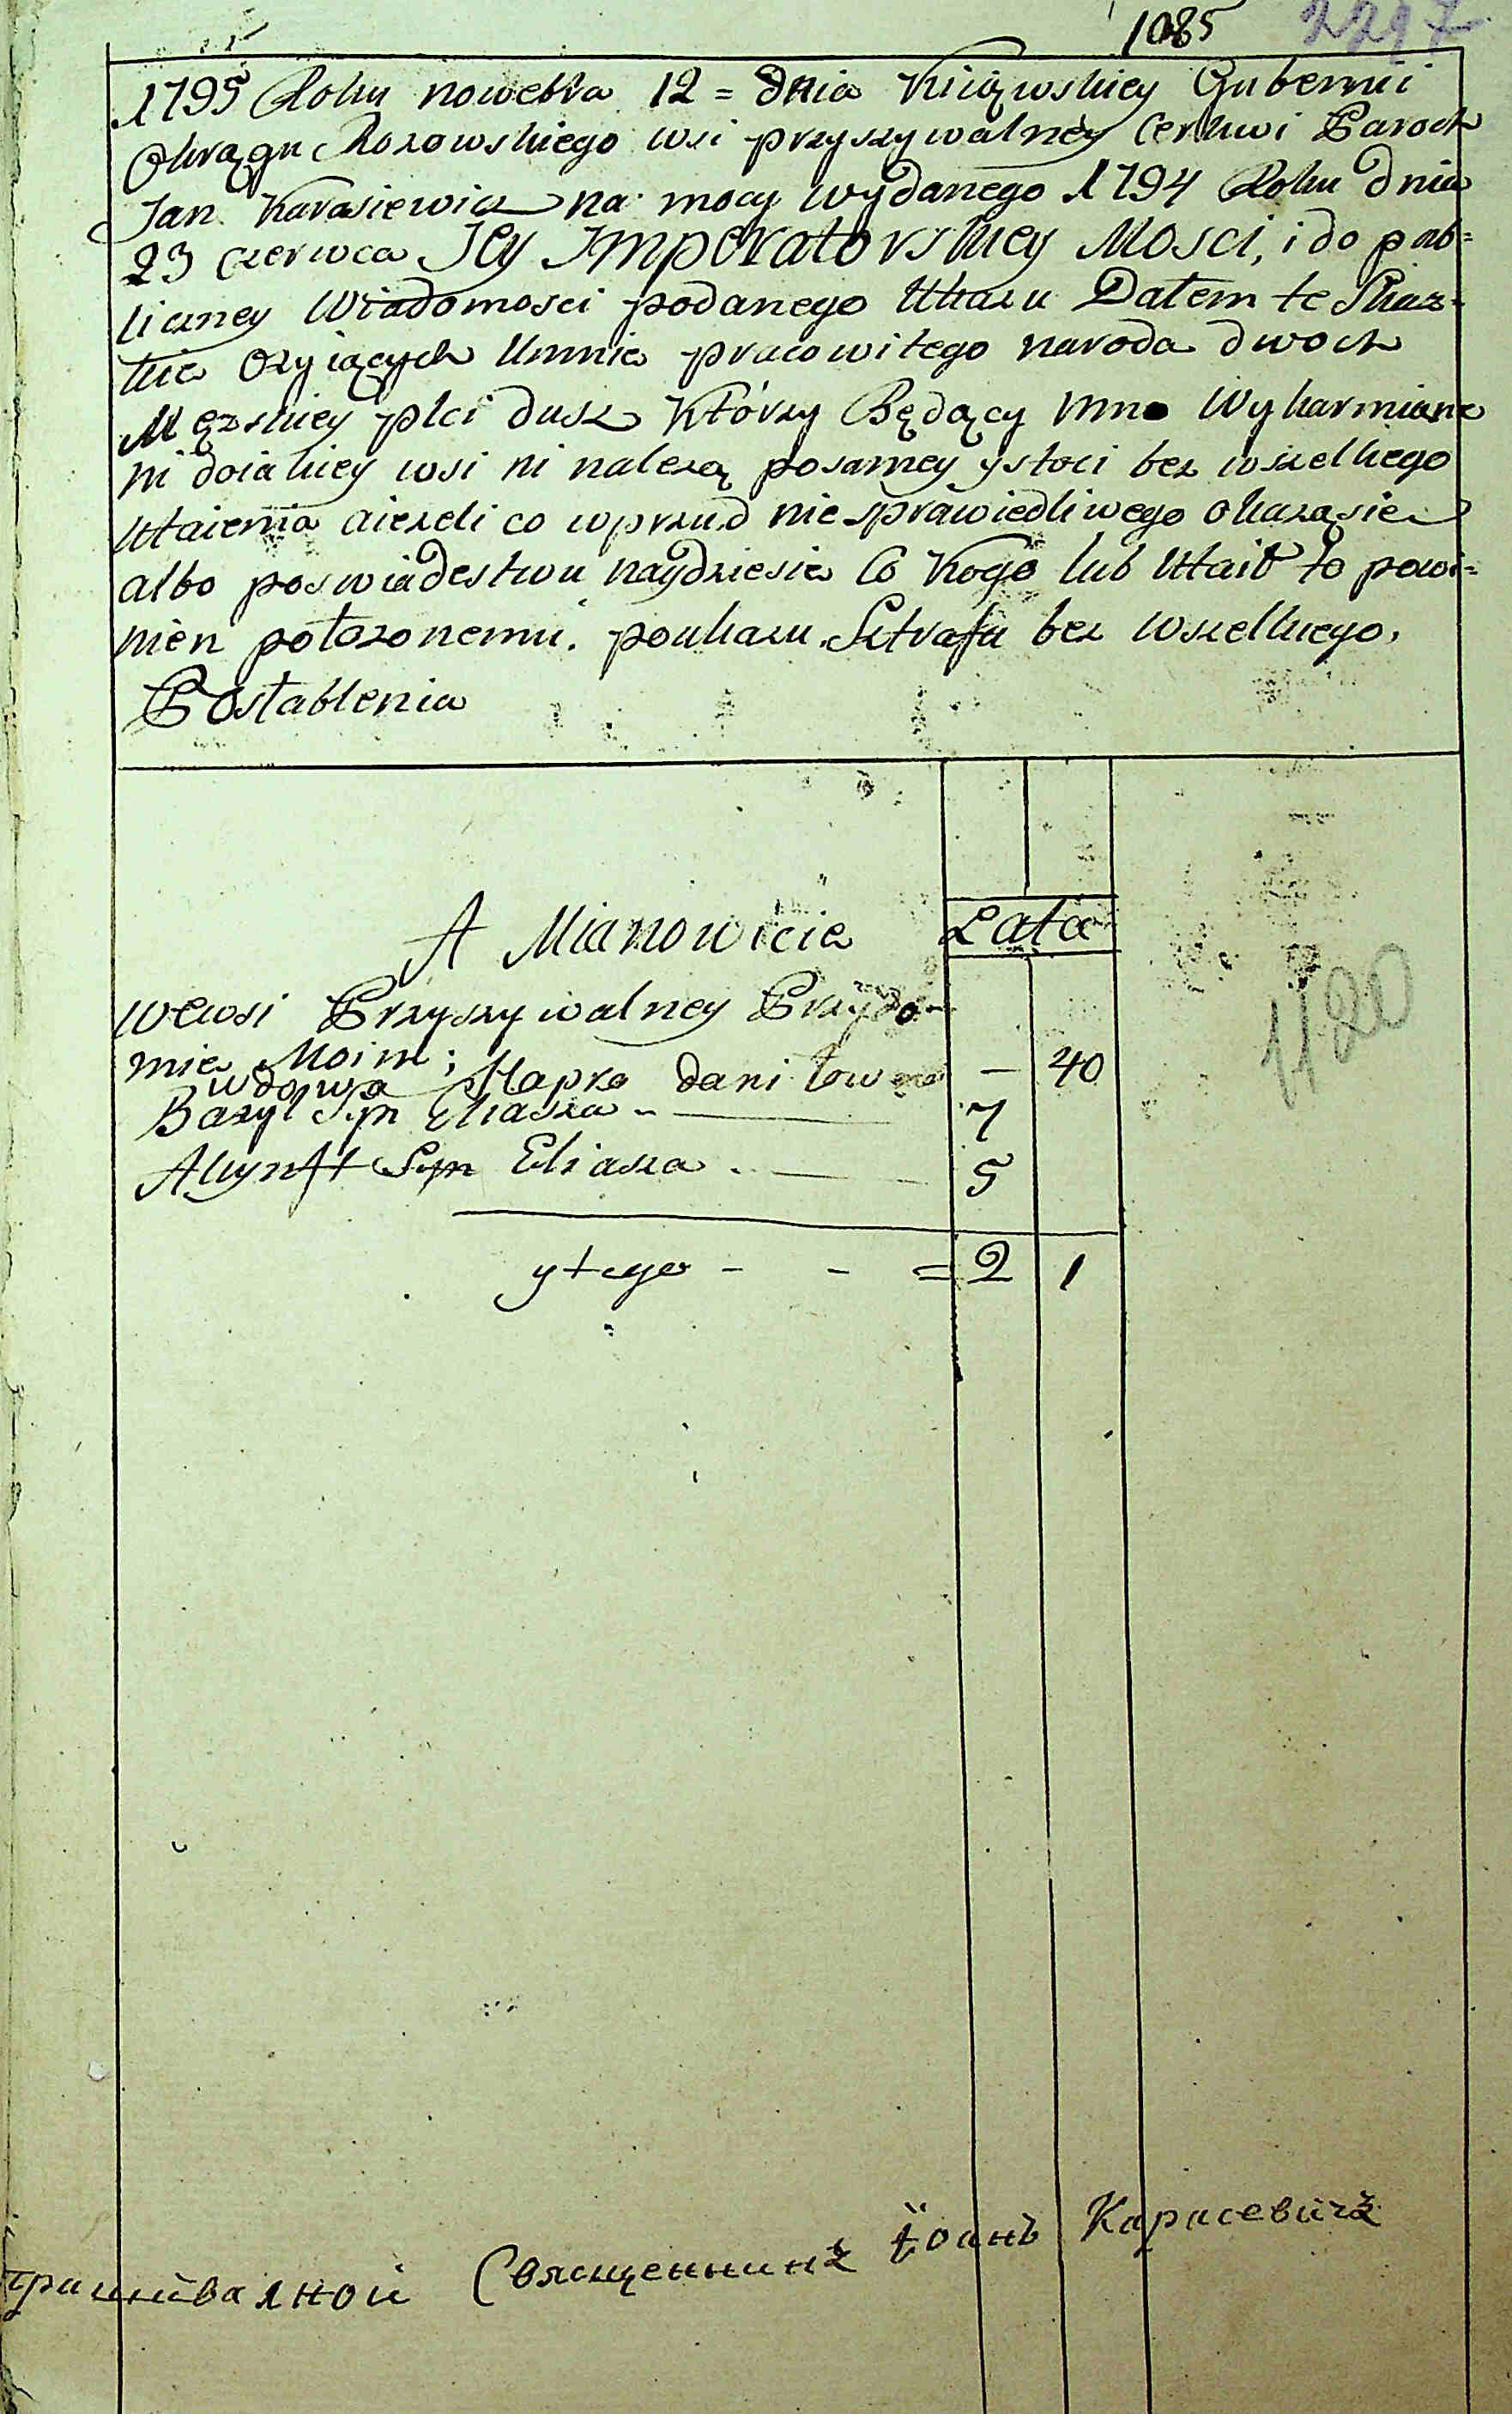 1085 2297
1795 Roku nowebra 12 = dnia Kiiąwskiey Gubernii
Okrągu Rozowskiego wsi przyszywalney Cerkwi Paroch
Jan Karasiewicz na mocy wydanego 1794 Roku dnia
23 czerwca Jey Imperatorskiey Mosci, i do pub=
liczney Wiadomosci podanego Ukazu Dałem te Skaz=
kie Ozyiących Umnie pracowitego naroda dwoch
Męzskiey płci dusz Którzy Będący Wykarmiane
ni doiakiey wsi ni nalezą posamey ystoci bez wszelkiego
Utaienia aiezeli co wprzud niesprawiedliwego okazasie
albo poswiadestwu naydziesie Co Kogo lub Utaił to powi=
nien połozonemu. poukazu Sztrafu bez wszelkiego,
Posłablenia
A Mianowicie Lata
wewsi Przyszywalney Przydo=
mie Moim;
wdowa Hapka daniłowna — 40
Bazyl Syn Eliasza — 7
Akynft Syn Eliasza . — 5
ytego - - = 2 1
1120
пришивалной Священникъ Іоанъ Карасевичъ